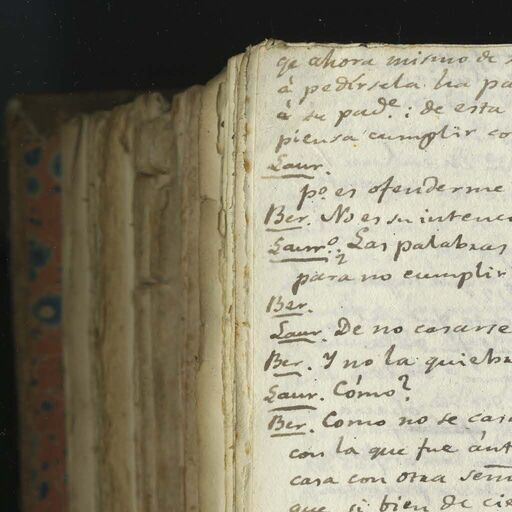 qe ahora mismo de
á pedírsela ha pa
á su pade.; de esta
piensa cumplir co
Laur.
po. es ofenderme
Ber. No es su intenci
Laurº. Las palabras
para no cumplir
Ber.
Laur. De no casarse
Ber. Y no la quiebra
Laur. Cómo?
Ber. Como no se casa
con la que fue ánt
casa con otra sem
que si bien de cie